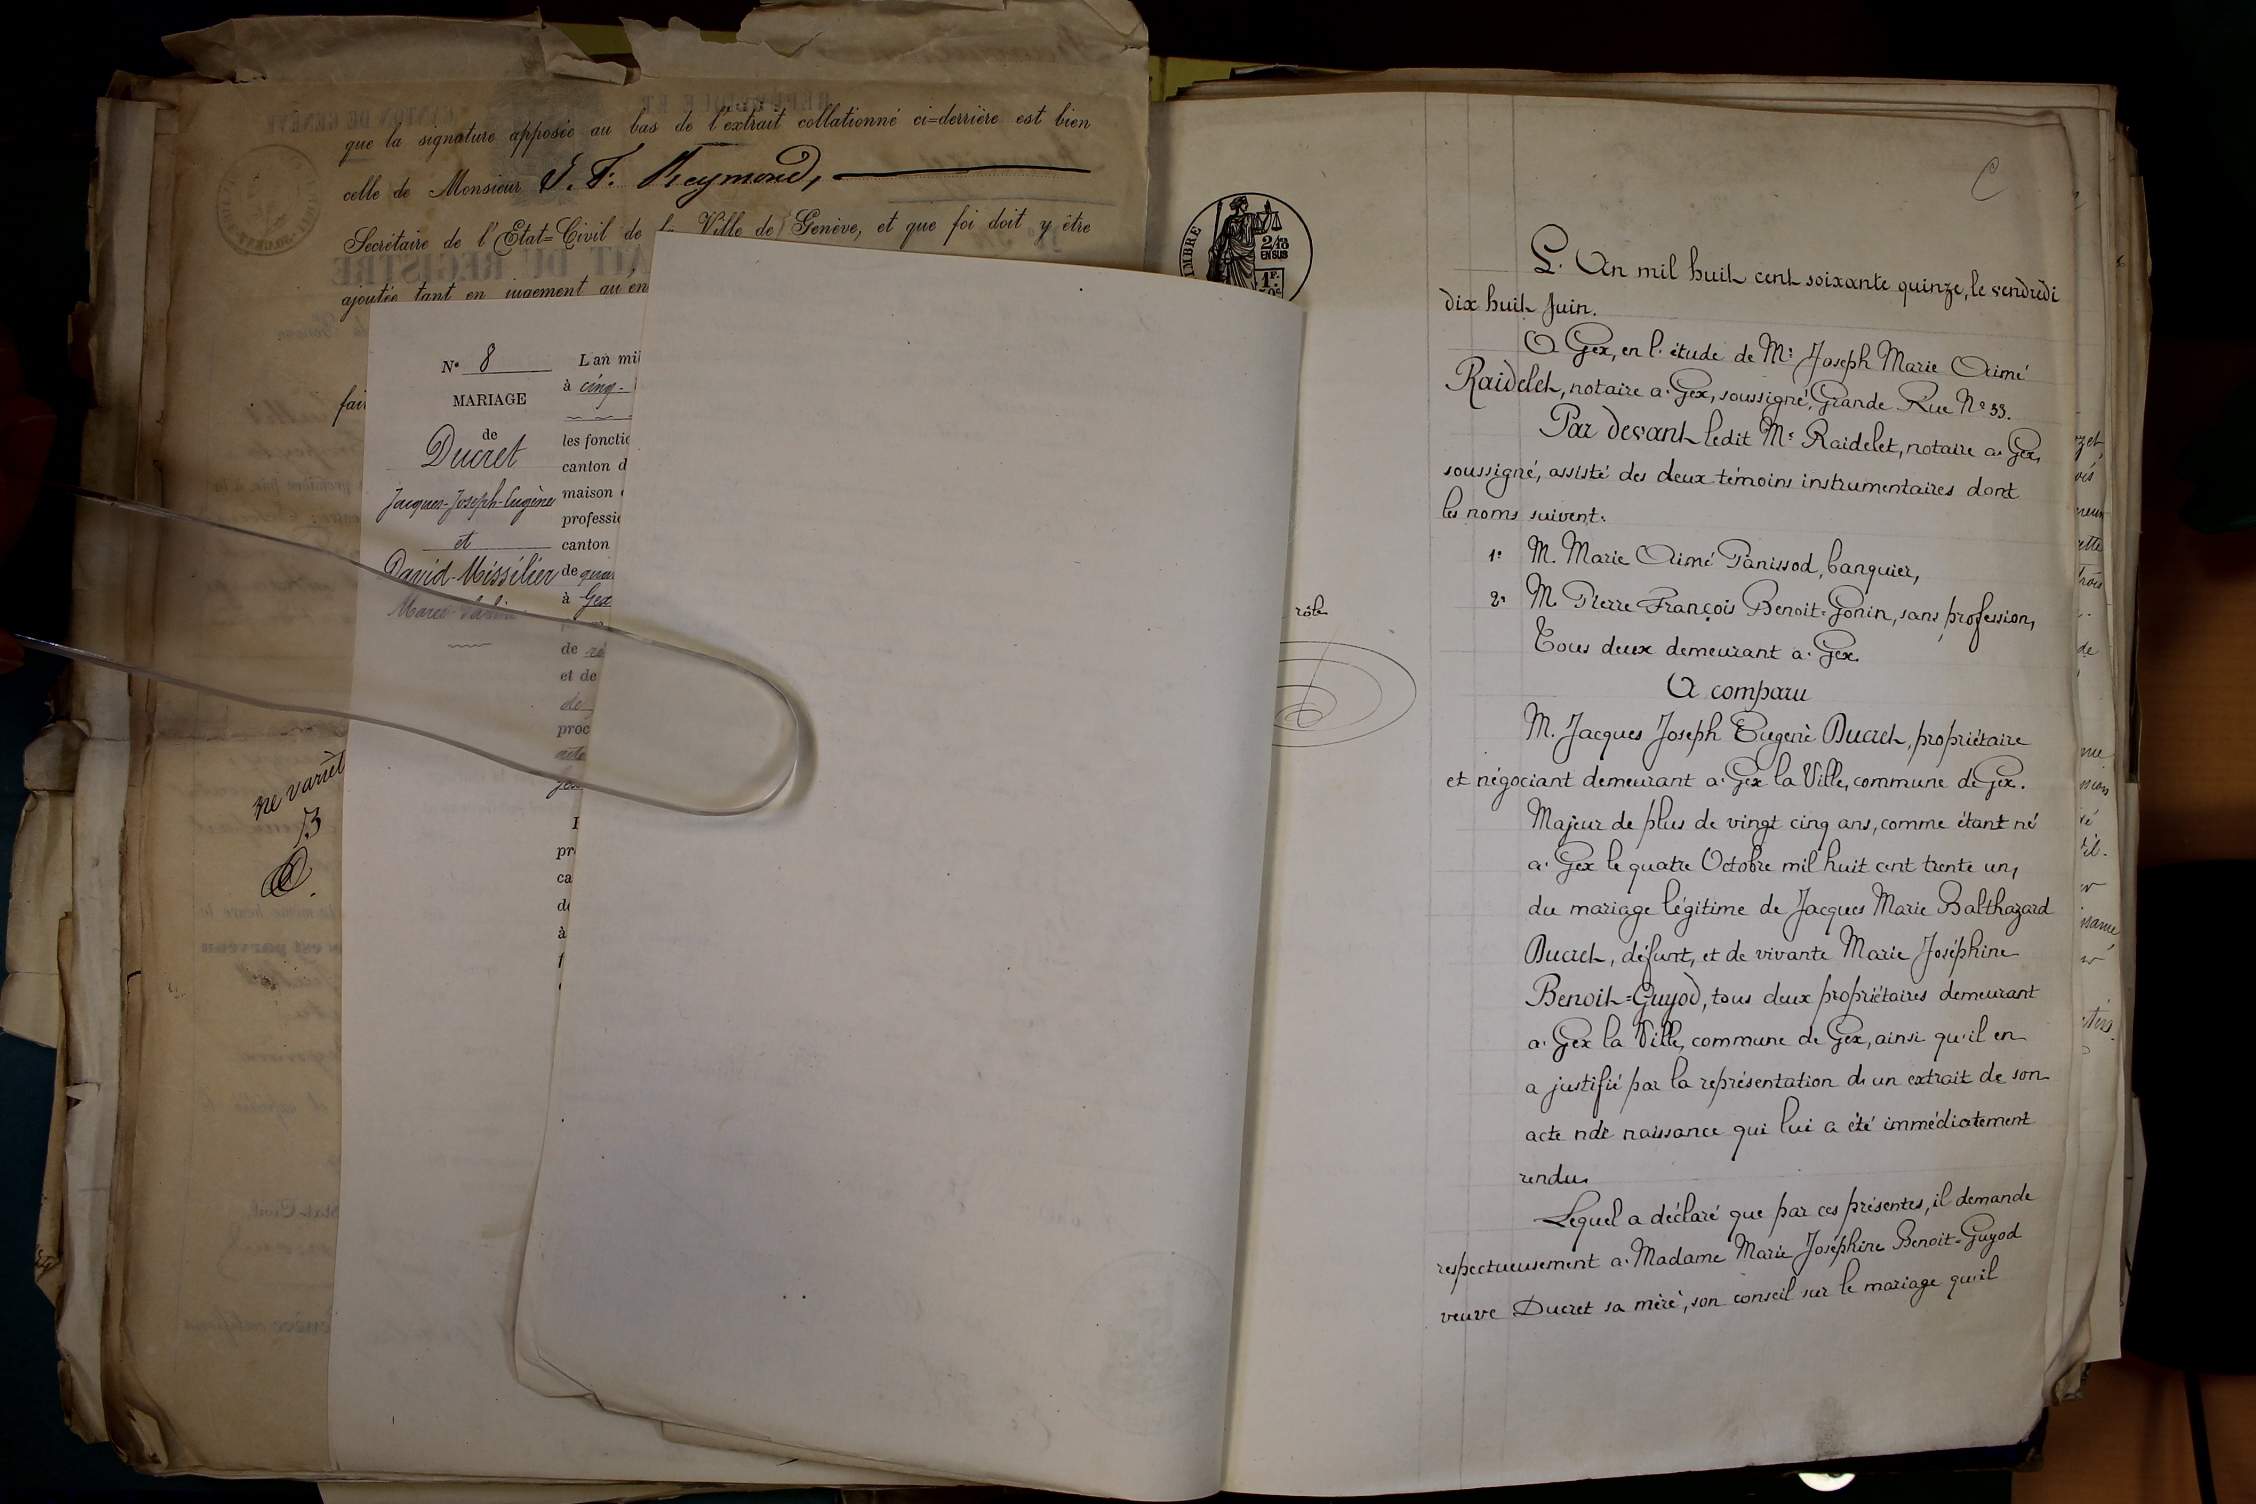 que la signature apposée au bas de l'extrait collationné ci=derrière est bien
celle de Monsieur J. F. Reymond,
Secrétaire de l'Etat=Civil de la Ville de Genève, et que foi doit y être
ajoutée tant en jugement qu'en
fai
ne variet
B
N° 8
MARIAGE
de
Ducret
Jacques-Joseph-Eugène
et
David-Missilier
Marie
L'an mil
à cinq
les foncti
canton d
maison
professi
canton
de
à Gex
de
et de
de
proc
pr
ca
de
à
TIMBRE
2/10
EN SUS
1F.
50c
rôle
C
L'An mil huit cent soixante quinze, le vendredi
dix huit Juin.
A Gex, en l'étude de Me Joseph Marie Aimé
Raidelet, notaire à Gex, soussigné, Grande Rue No 33.
Par devant ledit Me Raidelet, notaire à Gex,
soussigné, assisté des deux témoins instrumentaires dont
les noms suivent:
1° M. Marie Aimé Panissod, banquier,
2° M. Pierre François Benoit=Gonin, sans profession,
Tous deux demeurant à Gex.
A comparu
M. Jacques Joseph Eugène Ducret, propriétaire
et négociant demeurant à Gex la Ville, commune de Gex.
Majeur de plus de vingt cinq ans, comme étant né
à Gex le quatre Octobre mil huit cent trente un,
du mariage légitime de Jacques Marie Balthazard
Ducret, défunt, et de vivante Marie Joséphine
Benoit=Guyod, tous deux propriétaires demeurant
à Gex la Ville, commune de Gex, ainsi qu'il en
a justifié par la représentation d'un extrait de son
acte nde naissance qui lui a été immédiatement
rendu.
Lequel a déclaré que par ces présentes, il demande
respectueusement à Madame Marie Joséphine Benoit=Guyod
veuve Ducret sa mère, son conseil sur le mariage qu'il